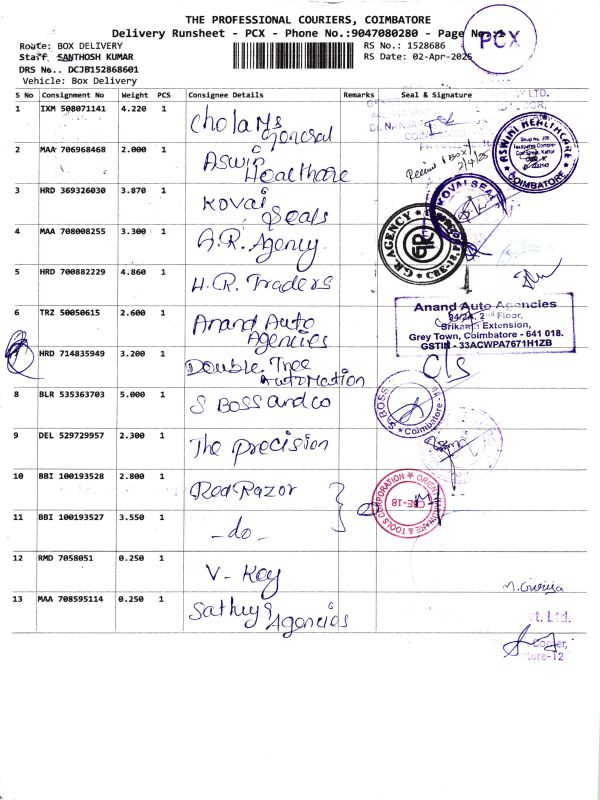 THE PROFESSIONAL COURIERS, COIMBATORE
Delivery Runsheet - PCX - Phone No.:9047080280 - Page No.:
PCX
Route: BOX DELIVERY
RS No.: 1528686
Staff SANTHOSH KUMAR
RS Date: 02-Apr-2025
DRS No.. DCJB152868601
Vehicle: Box Delivery
S No Consignment No Weight PCS Consignee Details Remarks Seal & Signature
1 IXM 508071141 4.220 1 Chola Ms General
2 MAA 706968468 2.000 1 Aswini Healthcare
ASWINI HEALTHCARE
COIMBATORE
3 HRD 369326030 3.870 1 Kovai Seals
KOVAI SEALS
4 MAA 708008255 3.300 1 G.R. Agency
G.R AGENCY
GR
CBE-18.
5 HRD 700882229 4.860 1 H.R. Traders
6 TRZ 50050615 2.600 1 Anand Auto Agencies
Anand Auto Agencies
2nd Floor,
Srikanth Extension,
Grey Town, Coimbatore - 641 018.
GSTIN - 33ACWPA7671H1ZB
HRD 714835949 3.200 1 Double Tree Automation
C/S
8 BLR 535363703 5.000 1 S Boss and co
S.BOSS
Coimbatore
9 DEL 529729957 2.300 1 The precision
10 BBI 100193528 2.800 1 Red Razor
& TOOLS CORPORATION
CBE-18
11 BBI 100193527 3.550 1 -do-
12 RMD 7058051 0.250 1 V-Key
13 MAA 708595114 0.250 1 Sathya Agencies
vt. Ltd.
Corner,
tore-12